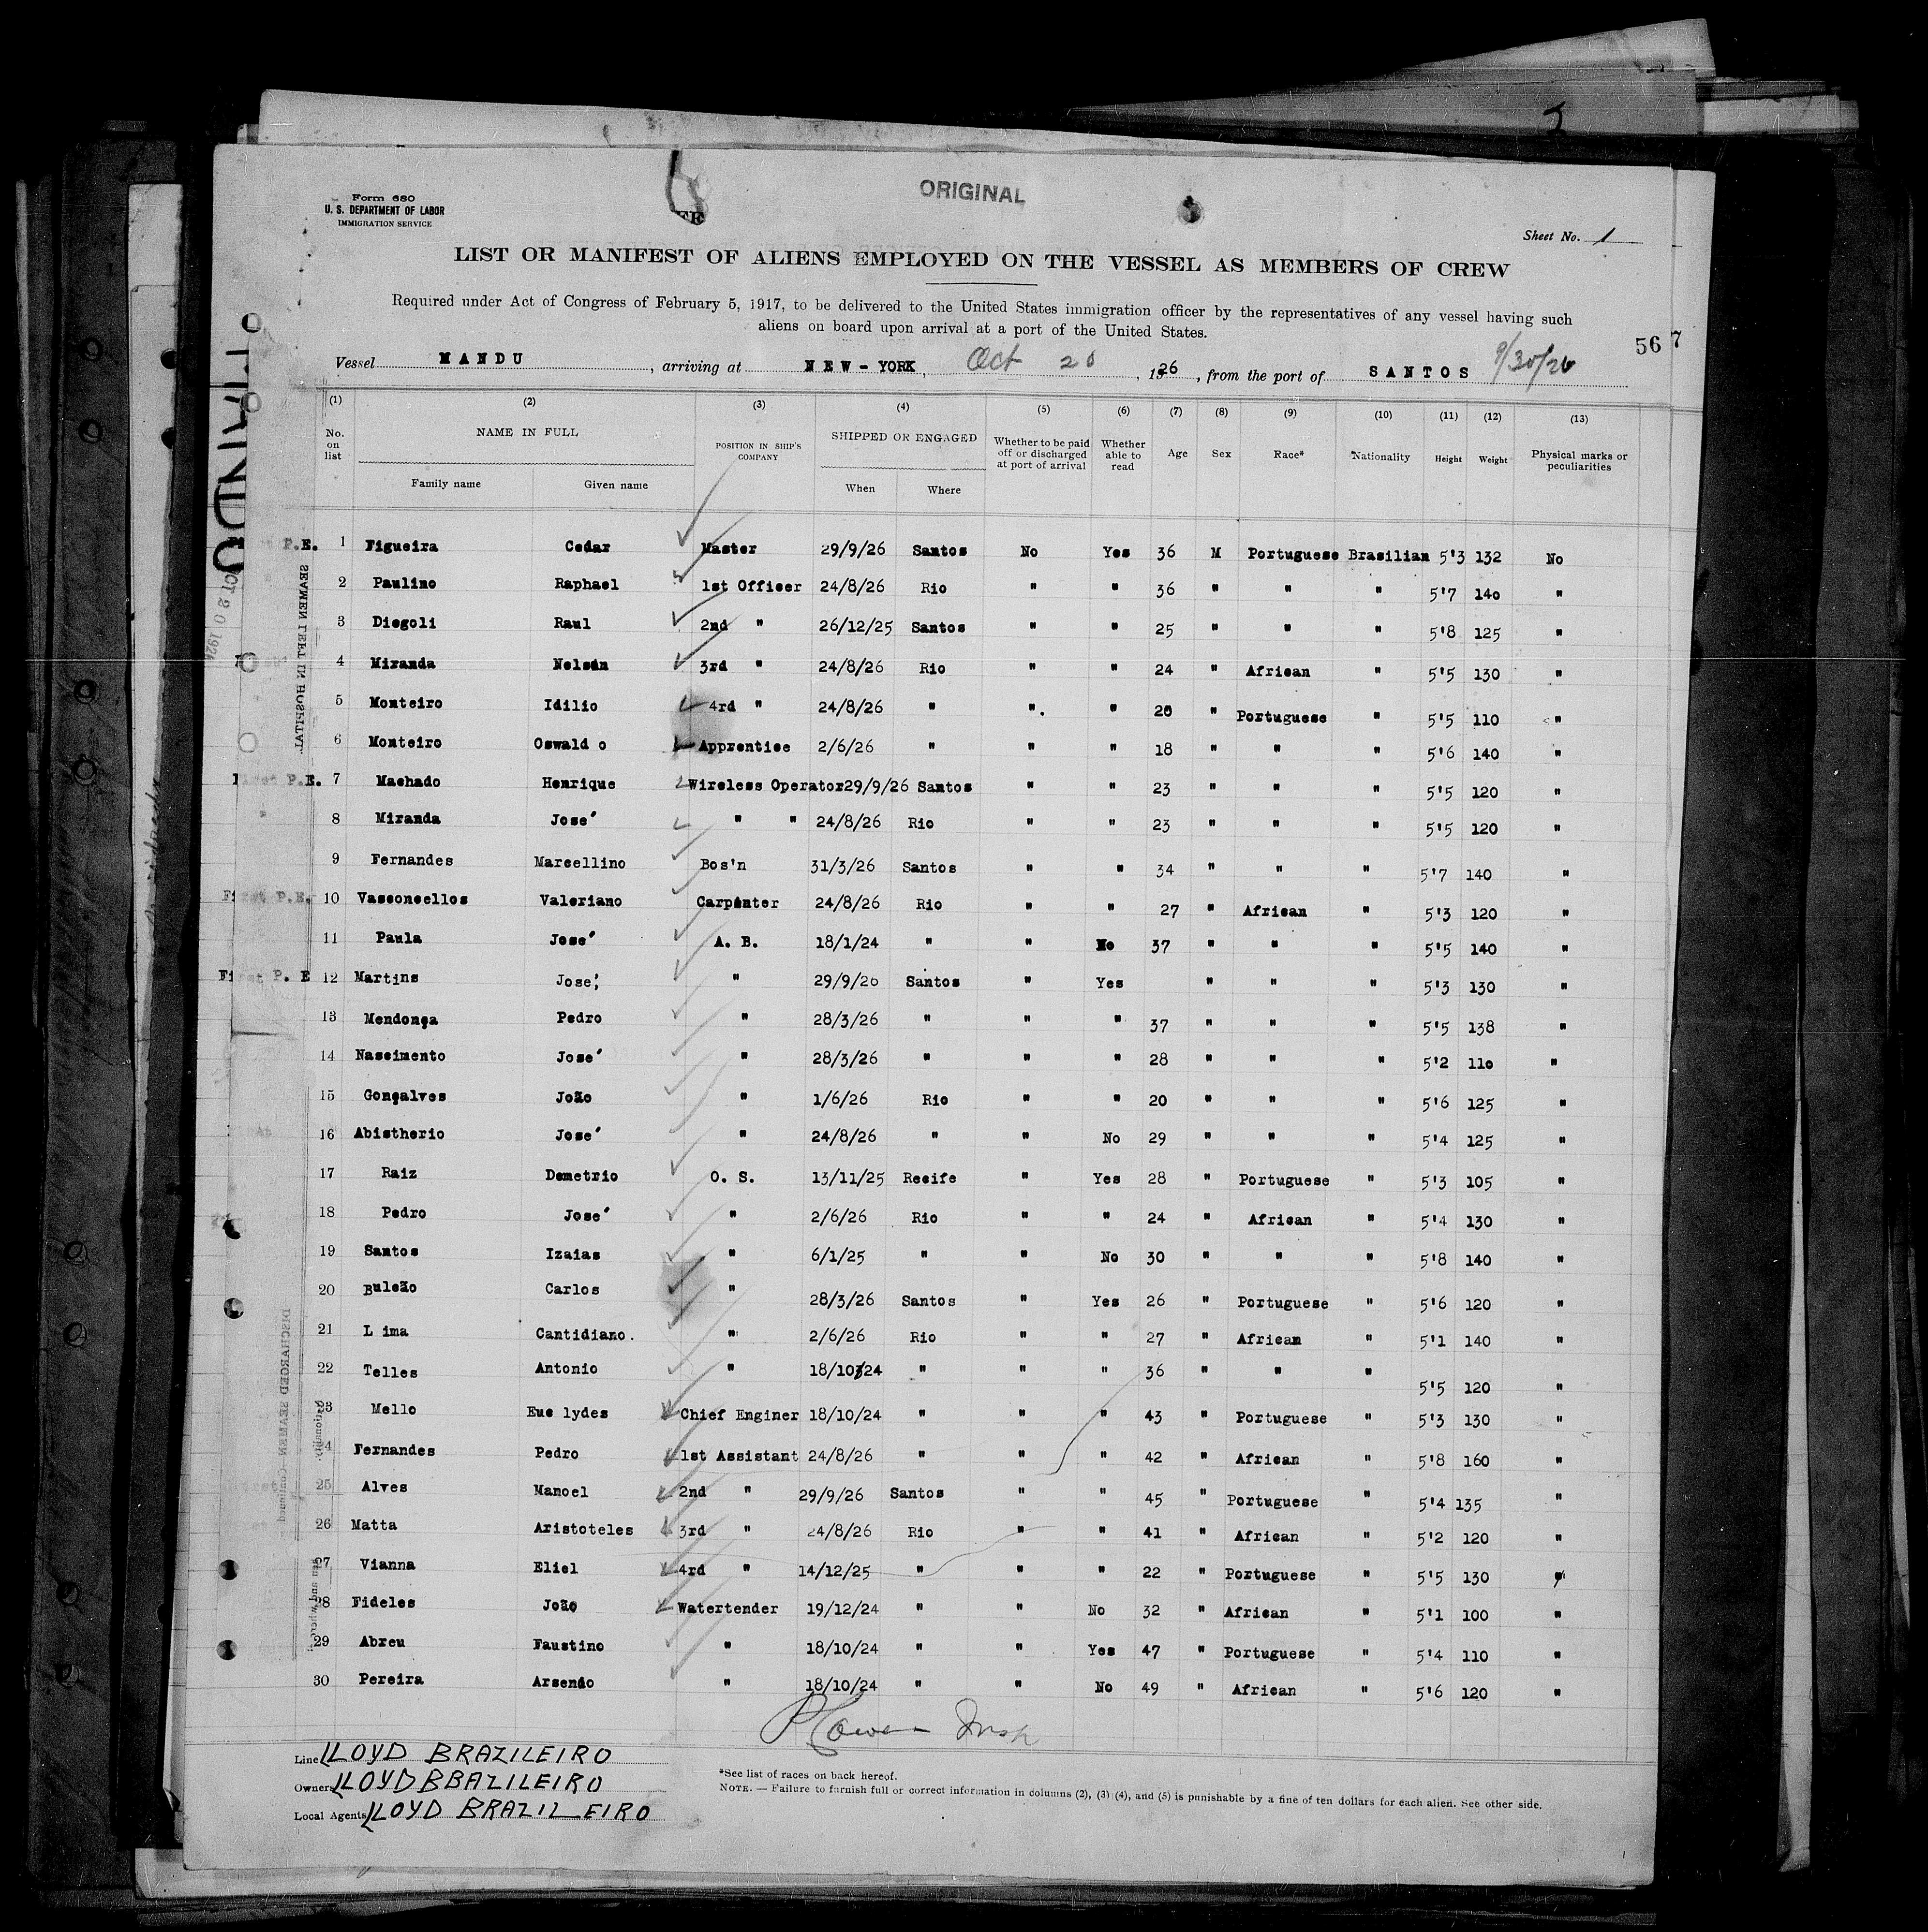 ORIGINAL
Form 680
U. S. DEPARTMENT OF LABOR
IMMIGRATION SERVICE
Sheet No. 1
LIST OR MANIFEST OF ALIENS EMPLOYED ON THE VESSEL AS MEMBERS OF CREW
Required under Act of Congress of February 5, 1917, to be delivered to the United States immigration officer by the representatives of any vessel having such
aliens on board upon arrival at a port of the United States.
567
Vessel MANDU, arriving at NEW-YORK, Oct 20, 1926, from the port of SANTOS 9/30/26
MANDU
OCT 20 192
(1) (2) (3) (4) (5) (6) (7) (8) (9) (10) (11) (12) (13)
No. on list NAME IN FULL POSITION IN SHIP'S COMPANY SHIPPED OR ENGAGED Whether to be paid off or discharged at port of arrival Whether able to read Age Sex Race* Nationality Height Weight Physical marks or peculiarities
Family name Given name When Where
P.E. 1 Figueira Cedar Master 29/9/26 Santos No Yes 36 M Portuguese Brasilian 5'3 132 No
2 Paulino Raphael 1st Officer 24/8/26 Rio " " 36 " " " 5'7 140 "
3 Diegoli Raul 2nd " 26/12/25 Santos " " 25 " " " 5'8 125 "
4 Miranda Nelson 3rd " 24/8/26 Rio " " 24 " African " 5'5 130 "
5 Monteiro Idilio 4rd " 24/8/26 " " " 20 " Portuguese " 5'5 110 "
6 Monteiro Oswald o Apprentice 2/6/26 " " " 18 " " " 5'6 140 "
First P.E. 7 Machado Henrique Wireless Operator 29/9/26 Santos " " 23 " " " 5'5 120 "
8 Miranda Jose' " " 24/8/26 Rio " " 23 " " " 5'5 120 "
9 Fernandes Marcellino Bos'n 31/3/26 Santos " " 34 " " " 5'7 140 "
First P.E. 10 Vasconcellos Valeriano Carpenter 24/8/26 Rio " " 27 " African " 5'3 120 "
11 Paula Jose' A. B. 18/1/24 " " No 37 " " " 5'5 140 "
First P. E 12 Martins Jose' " 29/9/26 Santos " Yes " " " 5'3 130 "
13 Mendonça Pedro " 28/3/26 " " " 37 " " " 5'5 138 "
14 Nascimento Jose' " 28/3/26 " " " 28 " " " 5'2 110 "
15 Gonçalves João " 1/6/26 Rio " " 20 " " " 5'6 125 "
16 Abistherio Jose' " 24/8/26 " " No 29 " " " 5'4 125 "
17 Raiz Demetrio O. S. 13/11/25 Recife " Yes 28 " Portuguese " 5'3 105 "
18 Pedro Jose' " 2/6/26 Rio " " 24 " African " 5'4 130 "
19 Santos Izaias " 6/1/25 " " No 30 " " " 5'8 140 "
20 Buleão Carlos " 28/3/26 Santos " Yes 26 " Portuguese " 5'6 120 "
21 L ima Cantidiano. " 2/6/26 Rio " " 27 " African " 5'1 140 "
22 Telles Antonio " 18/10/24 " " " 36 " " " 5'5 120 "
23 Mello Euc lydes Chief Enginer 18/10/24 " " " 43 " Portuguese " 5'3 130 "
24 Fernandes Pedro 1st Assistant 24/8/26 " " " 42 " African " 5'8 160 "
25 Alves Manoel 2nd " 29/9/26 Santos " " 45 " Portuguese " 5'4 135 "
26 Matta Aristoteles 3rd " 24/8/26 Rio " " 41 " African " 5'2 120 "
27 Vianna Eliel 4rd " 14/12/25 " " " 22 " Portuguese " 5'5 130 "
28 Fideles João Watertender 19/12/24 " " No 32 " African " 5'1 100 "
29 Abreu Faustino " 18/10/24 " " Yes 47 " Portuguese " 5'4 110 "
30 Pereira Arsenio " 18/10/24 " " No 49 " African " 5'6 120 "
SEAMEN LEFT IN HOSPITAL
DISCHARGED SEAMEN—Continued
Line LLOYD BRAZILEIRO
Owners LLOYD BBAZILEIRO
Local Agents LLOYD BRAZILEIRO
*See list of races on back hereof.
NOTE. — Failure to furnish full or correct information in columns (2), (3) (4), and (5) is punishable by a fine of ten dollars for each alien. See other side.